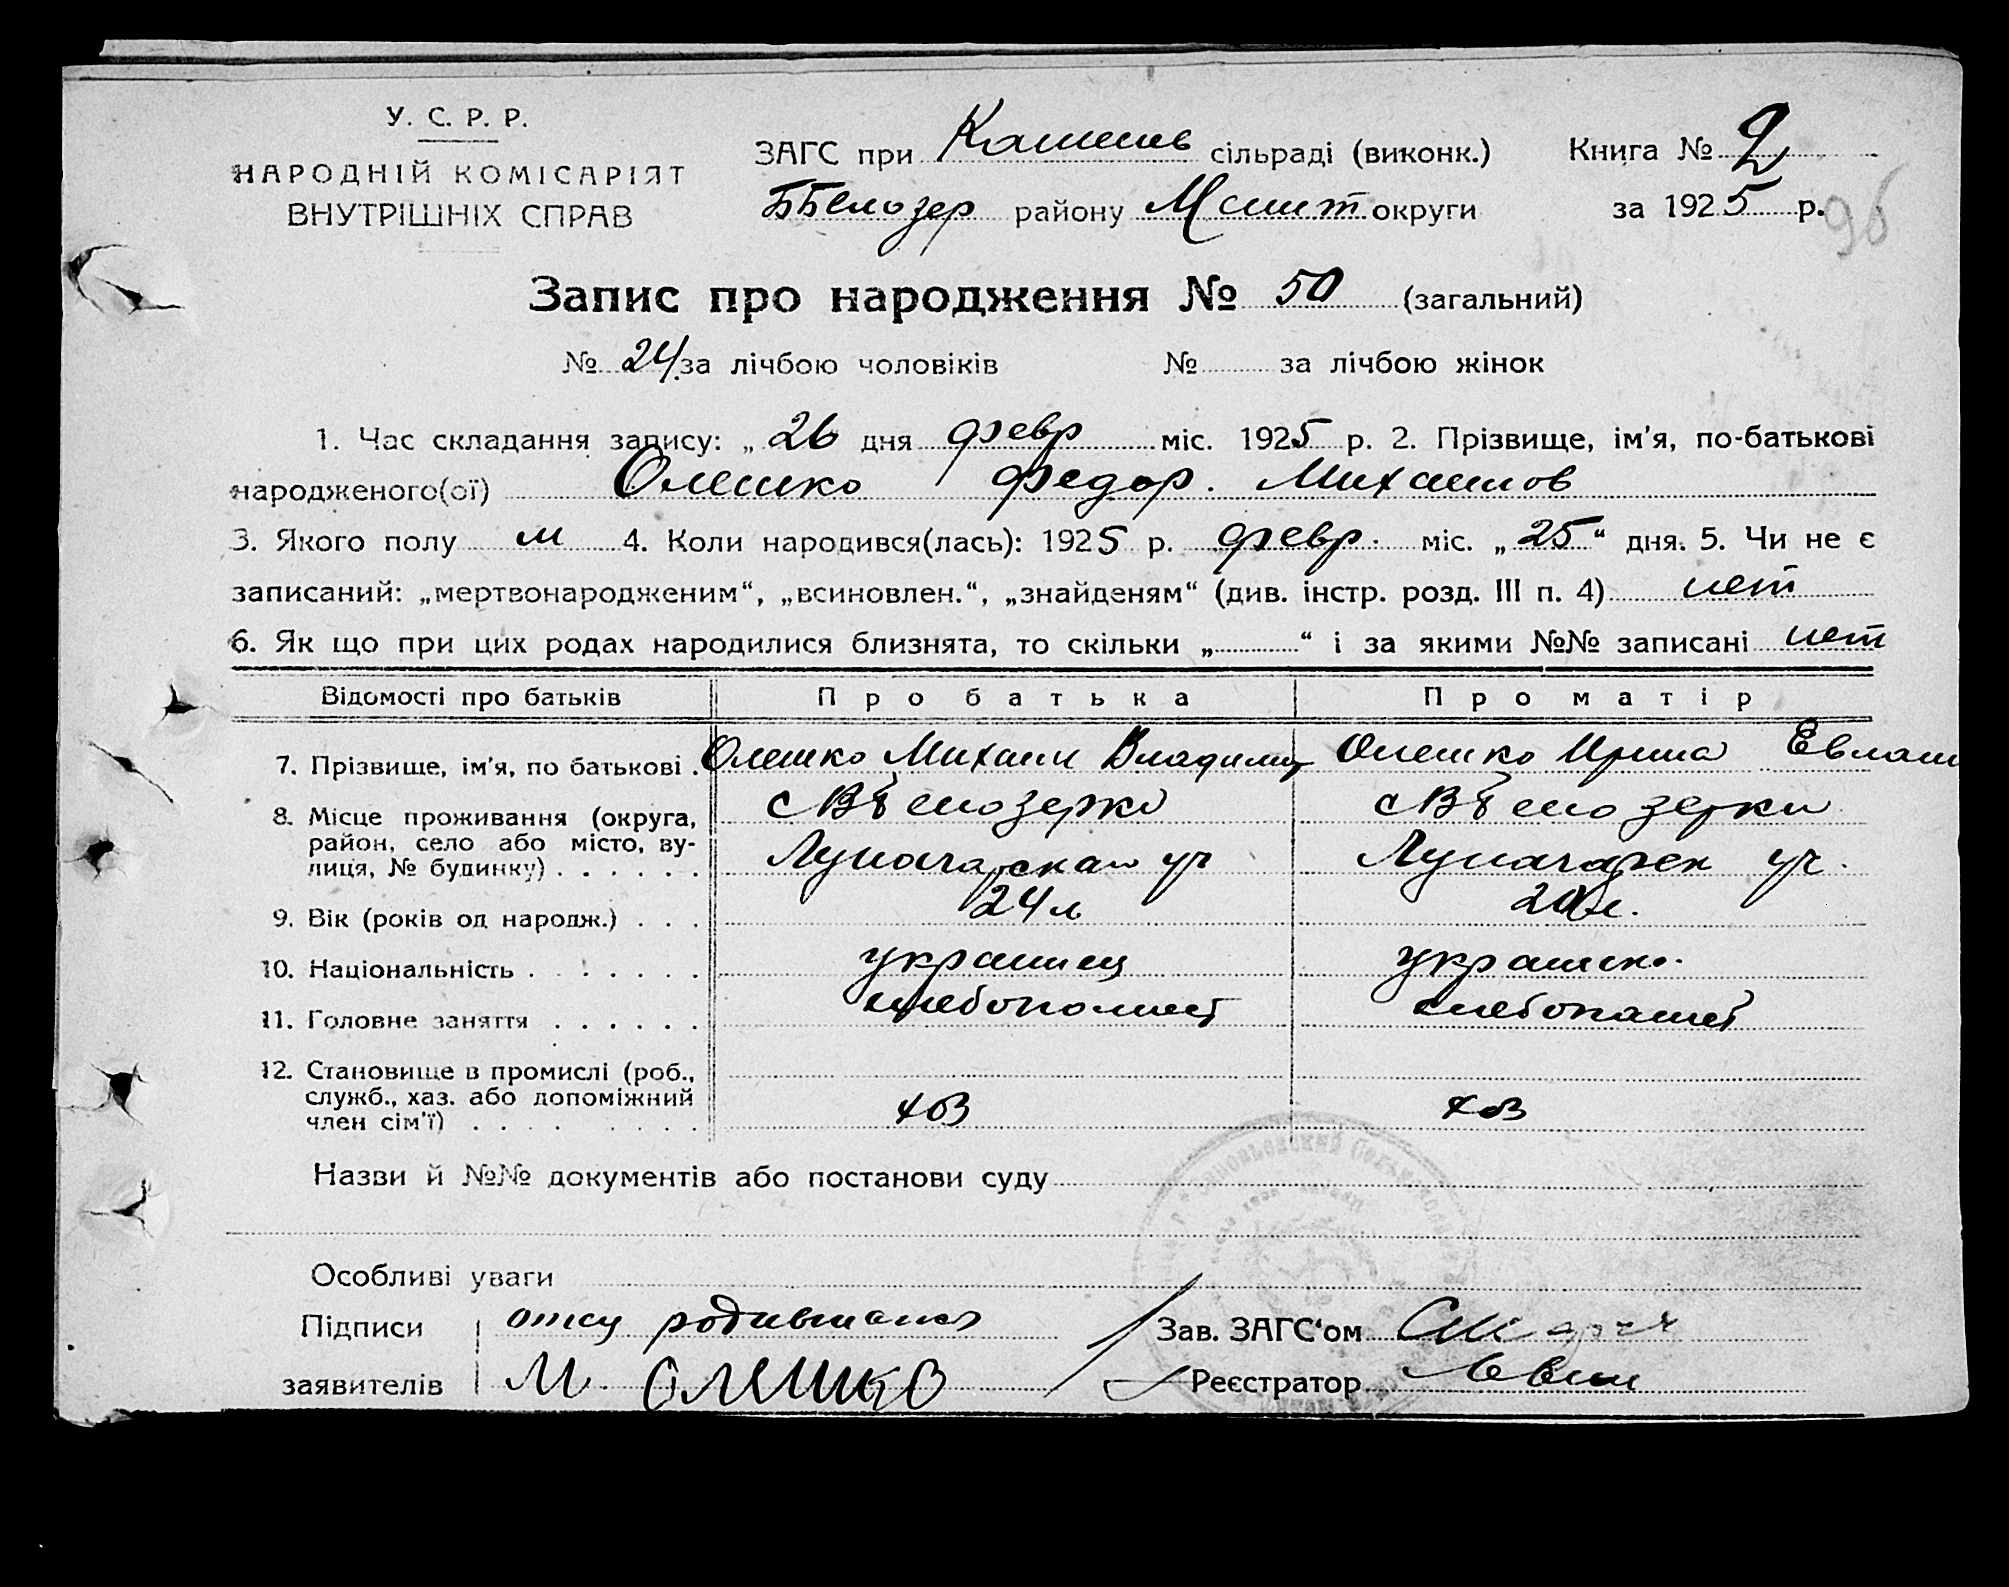 У. С. Р. Р.
НАРОДНІЙ КОМІСАРІЯТ
ВНУТРІШНІХ СПРАВ
ЗАГС при сільраді (виконк.)
Белозер району округи
Книга № 2
за 1925 р.
96
Запис про народження № 50 (загальний)
№ 24 за лічбою чоловіків № за лічбою жінок
1. Час складання запису: „26 дня февр міс. 1925 р. 2. Прізвище, ім'я, по-батькові
народженого(ої) Олешко Федор. Михаилов
3. Якого полу м 4. Коли народився(лась): 1925 р. февр. міс. „25“ дня. 5. Чи не є
записаний: „мертвонародженим“, „всиновлен.“, „знайденям“ (див. інстр. розд. III п. 4) нет
6. Як що при цих родах народилися близнята, то скільки „ “ і за якими №№ записані нет
Відомості про батьків Про батька Про матір
7. Прізвище, ім'я, по батькові . Олешко Михаил Владимир Олешко Ирина Евлам
8. Місце проживання (округа,
район, село або місто, вулиця, № будинку) . . . . . .
сВбелозерка сВбелозерки
Луначарская ул Луначарск ул.
9. Вік (років од народж.) . . . 24 л 20 л.
10. Національність . . . . . . . украинец украинк.
11. Головне заняття . . . . . . хлебопашест хлебопашест
12. Становище в промислі (роб.,
служб., хаз. або допоміжний
член сім'ї) . . . . . . . . хоз хоз
Назви й №№ документів або постанови суду
Особливі уваги
Підписи отец родившагося
заявителів М. Олешко
Зав. ЗАГС'ом
Реєстратор Левин